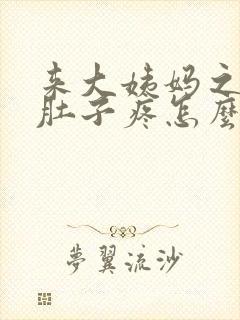 来大姨妈之
肚子疼怎麽
夢翼流沙